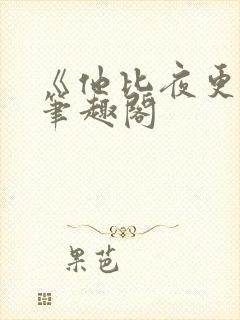 《他比夜更
筆趣閣
果芭